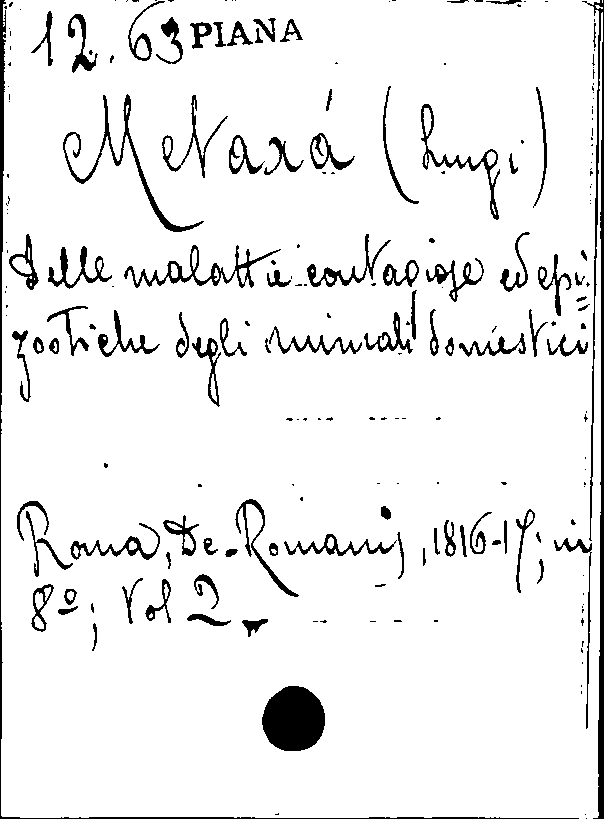 12. 63 PIANA
Metaxá (Luigi)
Delle malattie contagiose ed epi=
zootiche degli animali domestici
Roma, De-Romanis, 1816-17; in
8º; Vol 2.